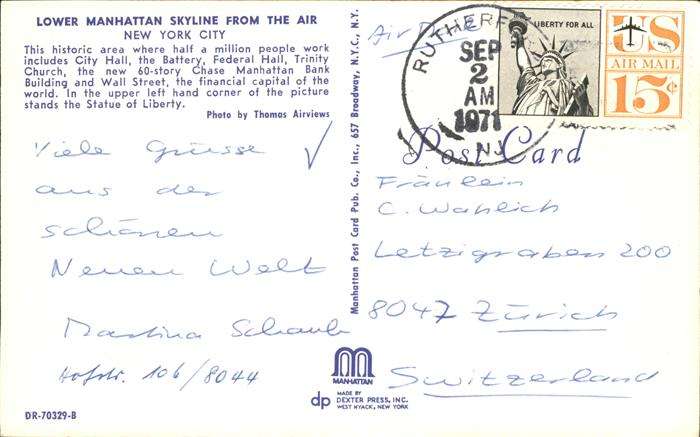 LOWER MANHATTAN SKYLINE FROM THE AIR
NEW YORK CITY
This historic area where half a million people work
includes City Hall, the Battery, Federal Hall, Trinity
Church, the new 60-story Chase Manhattan Bank
Building and Wall Street, the financial capital of the
world. In the upper left hand corner of the picture
stands the Statue of Liberty.
Photo by Thomas Airviews
Viele Grüsse
aus der
schönen
Neuen Welt
Martina Schaub
Hofstr. 106/8044
DR-70329-B
Manhattan Post Card Pub. Co., Inc., 657 Broadway, N.Y.C., N.Y.
MANHATTAN
dp MADE BY
DEXTER PRESS, INC.
WEST NYACK, NEW YORK
Air
RUTHERF
SEP
2
AM
1971
NJ
LIBERTY FOR ALL
US
AIR MAIL
15¢
Post Card
Fräulein
C. Wahlich
Letzigraben 200
8047 Zürich
Switzerland